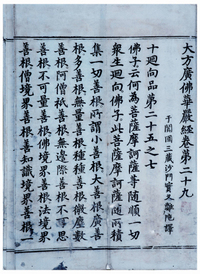 大方廣佛華嚴經卷第二十九
于闐國三藏沙門實叉難陀譯
十迴向品第二十五之七
佛子云何為菩薩摩訶薩等隨順一切
衆生迴向佛子此菩薩摩訶薩隨所積
集一切善根所謂小善根大善根廣善
根多善根無量善根種種善根微塵數
善根阿僧祇善根無邊際善根不可思
善根不可量善根佛境界善根法境界
善根僧境界善根善知識境界善根一